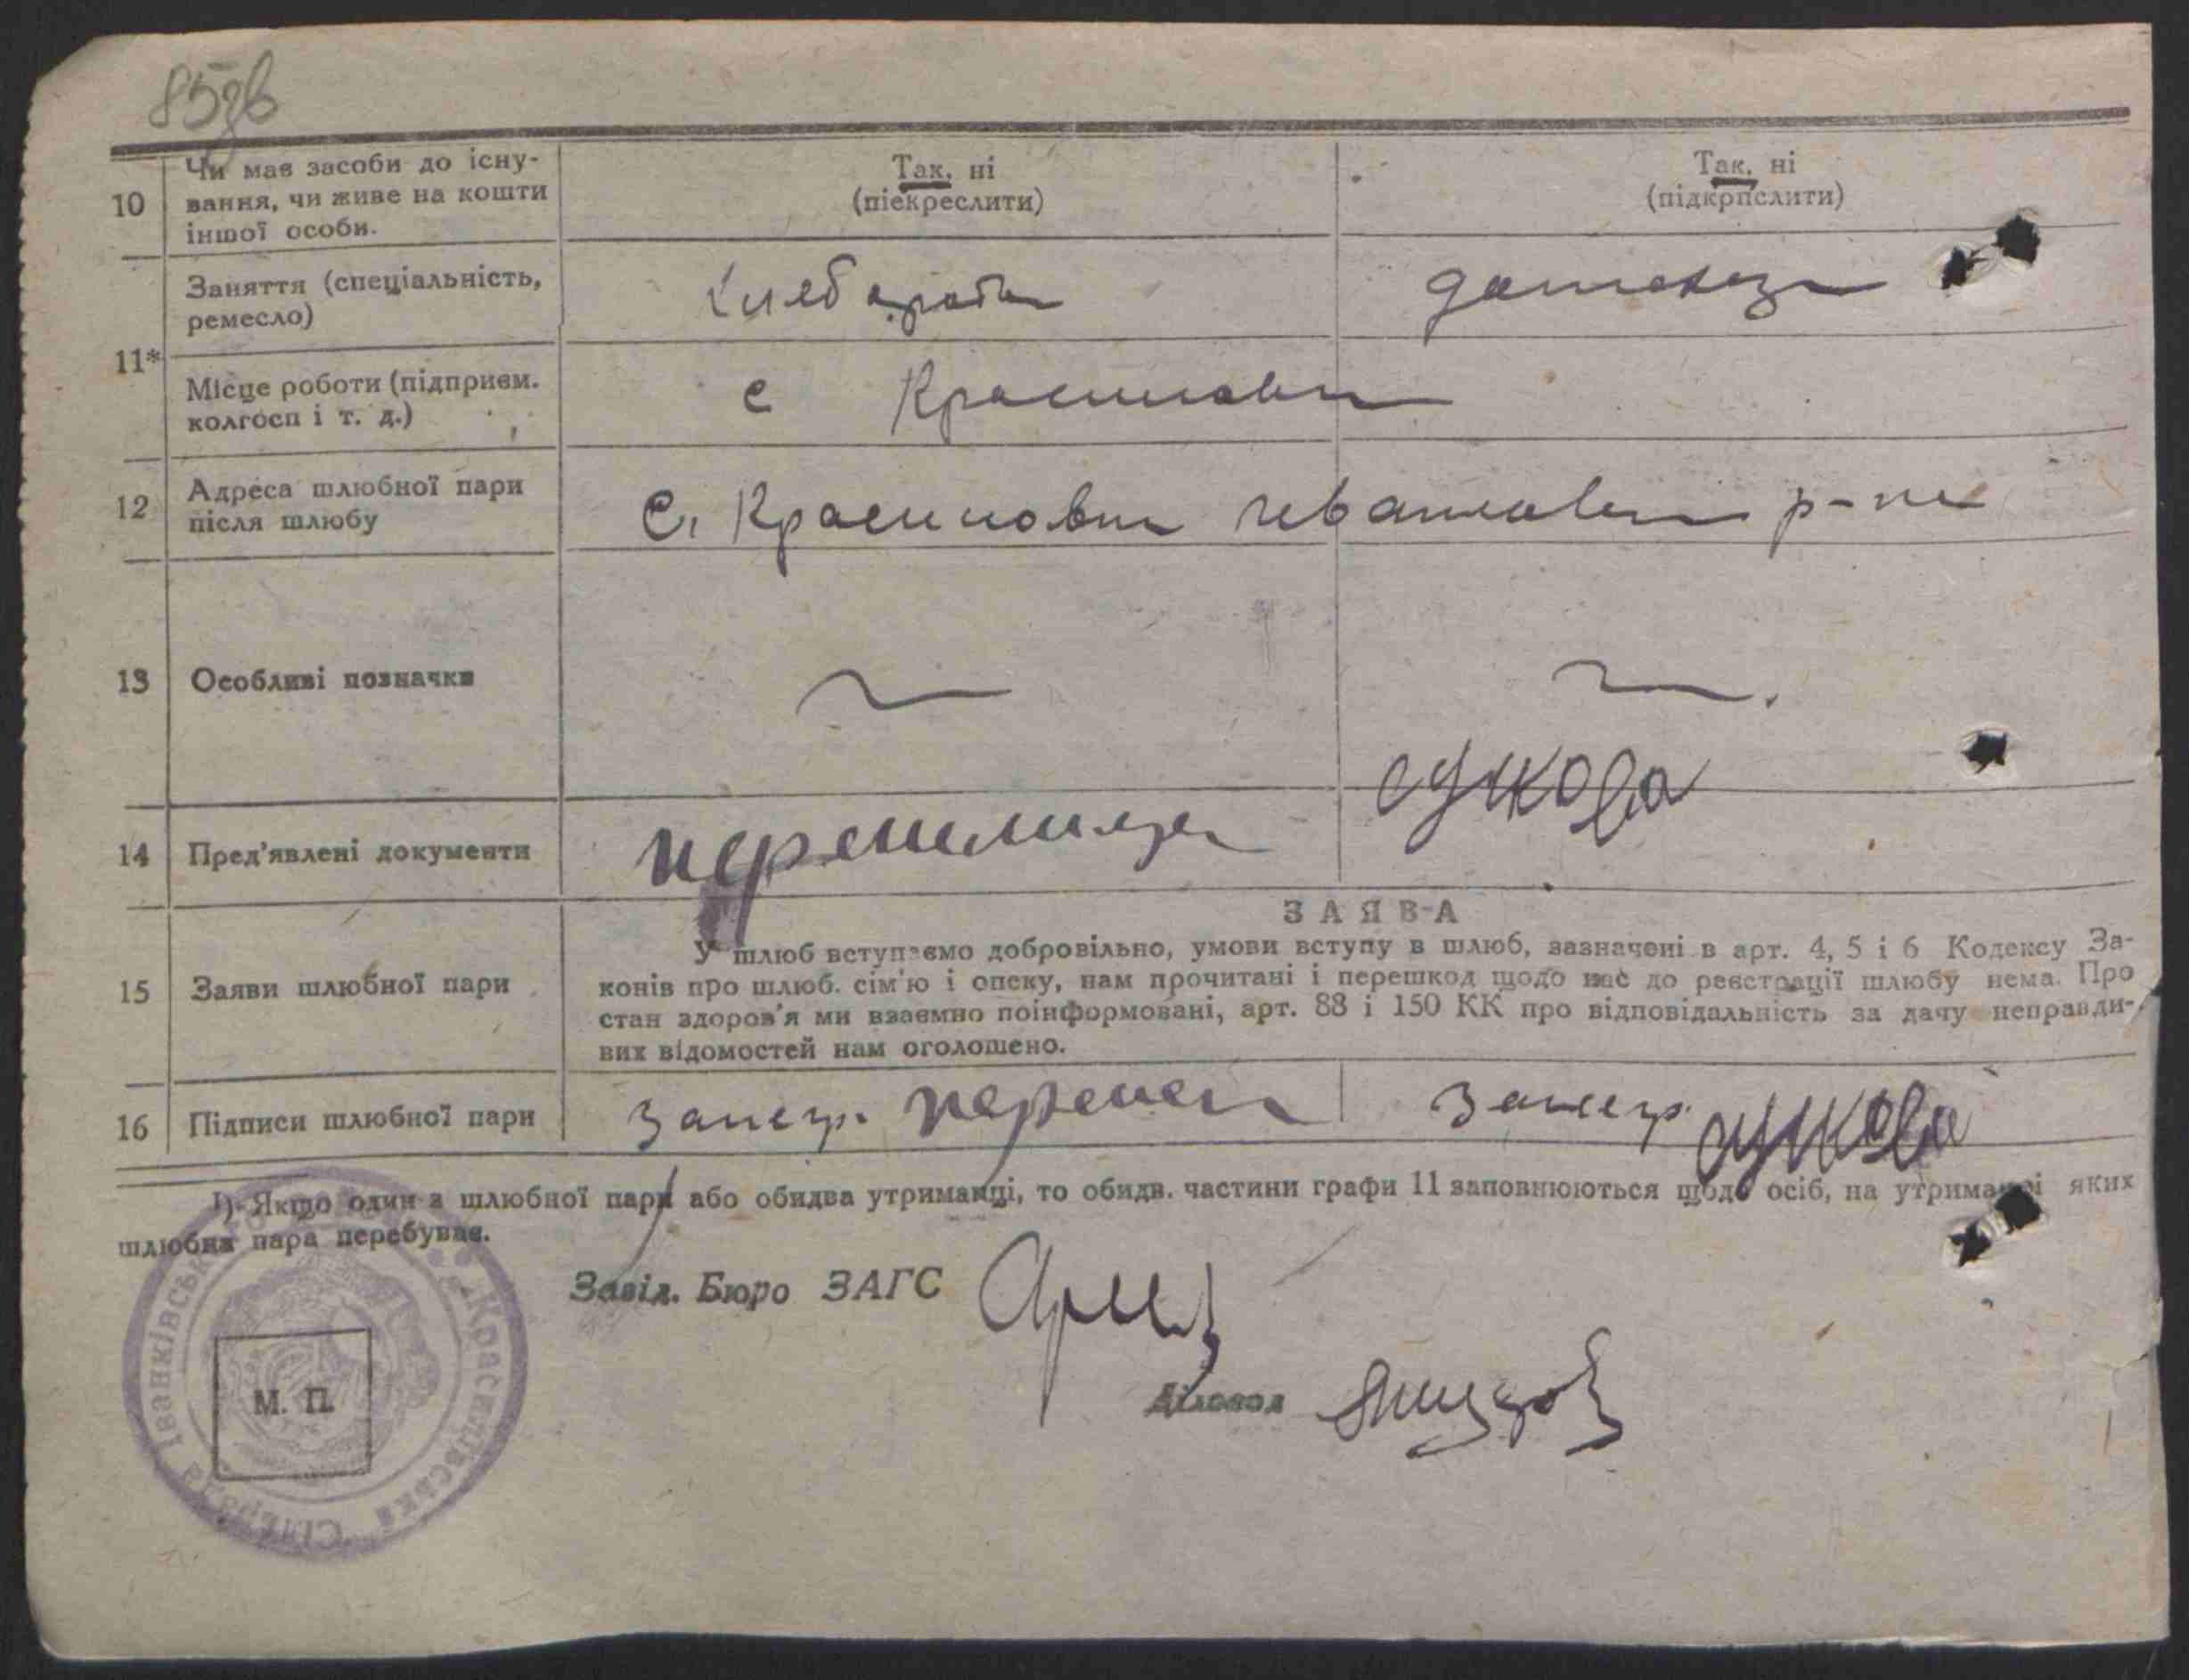 85зв
10 Чи має засоби до існу-
вання, чи живе на кошти
іншої особи.
Так, ні
(піекреслити)
Так, ні
(підкрпслити)
11*
Заняття (спеціальність,
ремесло)
хлебороб
домохоз
Місце роботи (підприєм.
колгосп і т. д.)
с Красиловка
12 Адреса шлюбної пари
після шлюбу
С. Красиловка р-на
13 Особливі позначки
14 Пред'явлені документи
сукова
15 Заяви шлюбної пари
ЗАЯВ-А
У шлюб вступаємо добровільно, умови вступу в шлюб, зазначені в арт. 4, 5 і 6 Кодексу За-
конів про шлюб. сім'ю і опеку, нам прочитані і перешкод щодо нас до реєстрації шлюбу нема. Про
стан здоров'я ми взаємно поінформовані, арт. 88 і 150 КК про відповідальність за дачу неправди-
вих відомостей нам оголошено.
16 Підписи шлюбної пари
сукова
1) Якщо один з шлюбної пари або обидва утриманці, то обидв. частини графи 11 заповнюються щодо осіб, на утриманні яких
шлюбна пара перебуває.
Завід. Бюро ЗАГС
Діловод
М. П.
Красилівська Сільрада Іванківськ